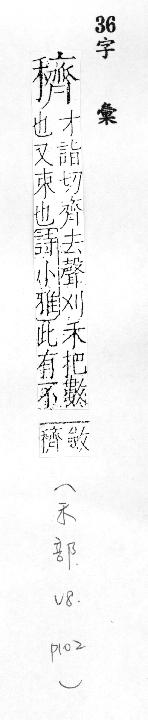 36字彙
穧
才詣切齊去聲刈禾把數
也又束也詩小雅此有不
斂
穧
(禾部.V8.P102)